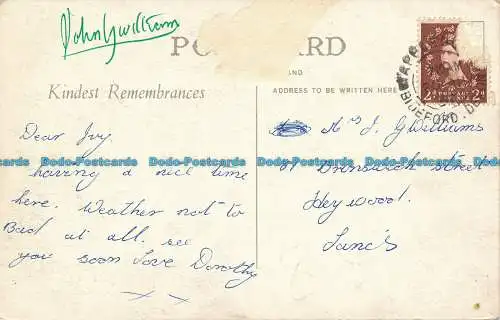 John Gwilliam
POS CARD
AND
Kindest Remembrances
ADDRESS TO BE WRITTEN HERE
APP
BIDEFORD. D
2D POSTAGE 2D
Dear Ivy,
having a nice time
here. Weather not to
Bad at all. see
you soon Love Dorothy
x x
Mrs J. Gwilliams
Brunswick Street
Heywood.
Lancs
Dodo-Postcards Dodo-Postcards Dodo-Postcards Dodo-Postcards Dodo-Postcards